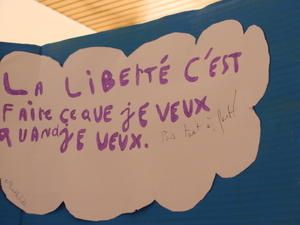 LA LiBERTÉ C'EST
FAiRE CE QUE jE VEUX
QUAND jE VEUX. Pas tout à fait!